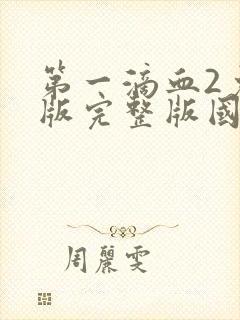 第一滴血2
版完整版國
周麗雯